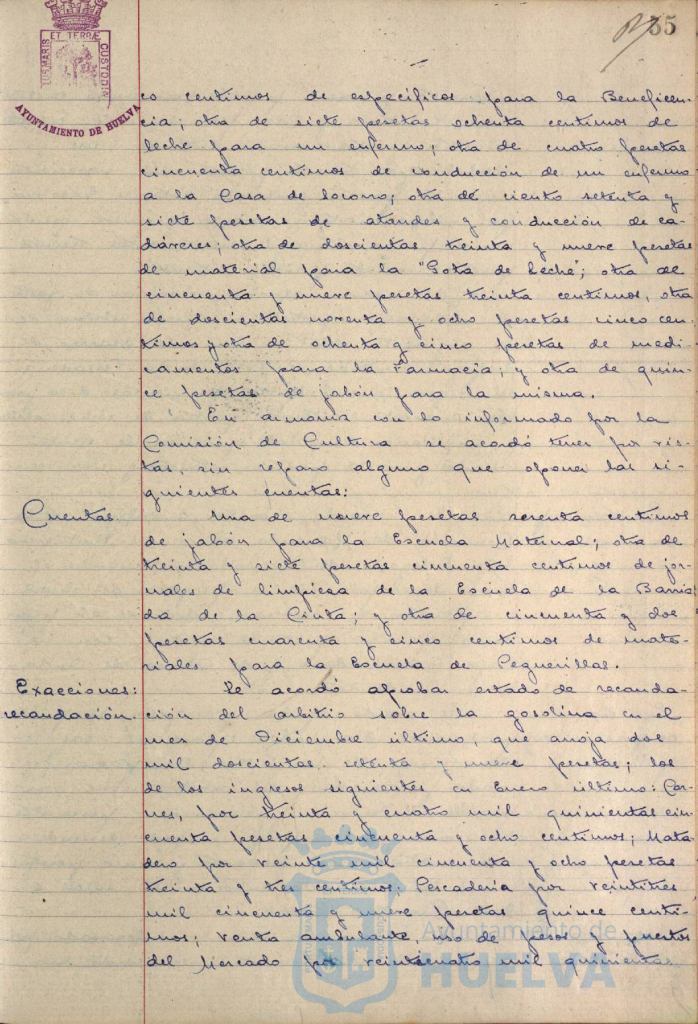 35
PORTUS MARIS ET TERRÆ CUSTODIA
AYUNTAMIENTO DE HUELVA
co centimos de especificos para la Beneficen-
cia; otra de siete pesetas ochenta centimos de
leche para un enfermo; otra de cuatro pesetas
cincuenta centimos de conducción de un enfermo
a la Casa de Socorro; otra de ciento setenta y
siete pesetas de ataudes y conducción de ca-
dáveres; otra de doscientas treinta y nueve pesetas
de material para la "Gota de leche"; otra de
cincuenta y nueve pesetas treinta centimos, otra
de doscientas noventa y ocho pesetas cinco cen-
timos y otra de ochenta y cinco pesetas de medi-
camentos para la Farmacia; y otra de quin-
ce pesetas de jabón para la misma.
En armonia con lo informado por la
Comisión de Cultura se acordó tener por vis-
tas, sin reparo alguno que oponer las si-
guientes cuentas:
Cuentas
Una de nueve pesetas sesenta centimos
de jabón para la Escuela Maternal; otra de
treinta y siete pesetas cincuenta centimos de jor-
nales de limpiesa de la Escuela de la Barria
da de la Cinta; y otra de cincuenta y dos
pesetas cuarenta y cinco centimos de mate-
riales para la Escuela de Peguerillas.
Exacciones:
recaudación.
Se acordó aprobar estado de recauda-
ción del arbitrio sobre la gasolina en el
mes de Diciembre último, que arroja dos
mil doscientas setenta y nueve pesetas; los
de los ingresos siguientes en Enero último: Car-
nes, por treinta y cuatro mil quinientas cin-
cuenta pesetas cincuenta y ocho centimos; Mata-
dero por veinte mil cincuenta y ocho pesetas
treinta y tres centimos; Pescadería por veintitres
mil cincuenta y nueve pesetas quince centi-
mos; venta ambulante, uso de pesos y puestos
del Mercado por veinticuatro mil quinientas
Ayuntamiento de
HUELVA